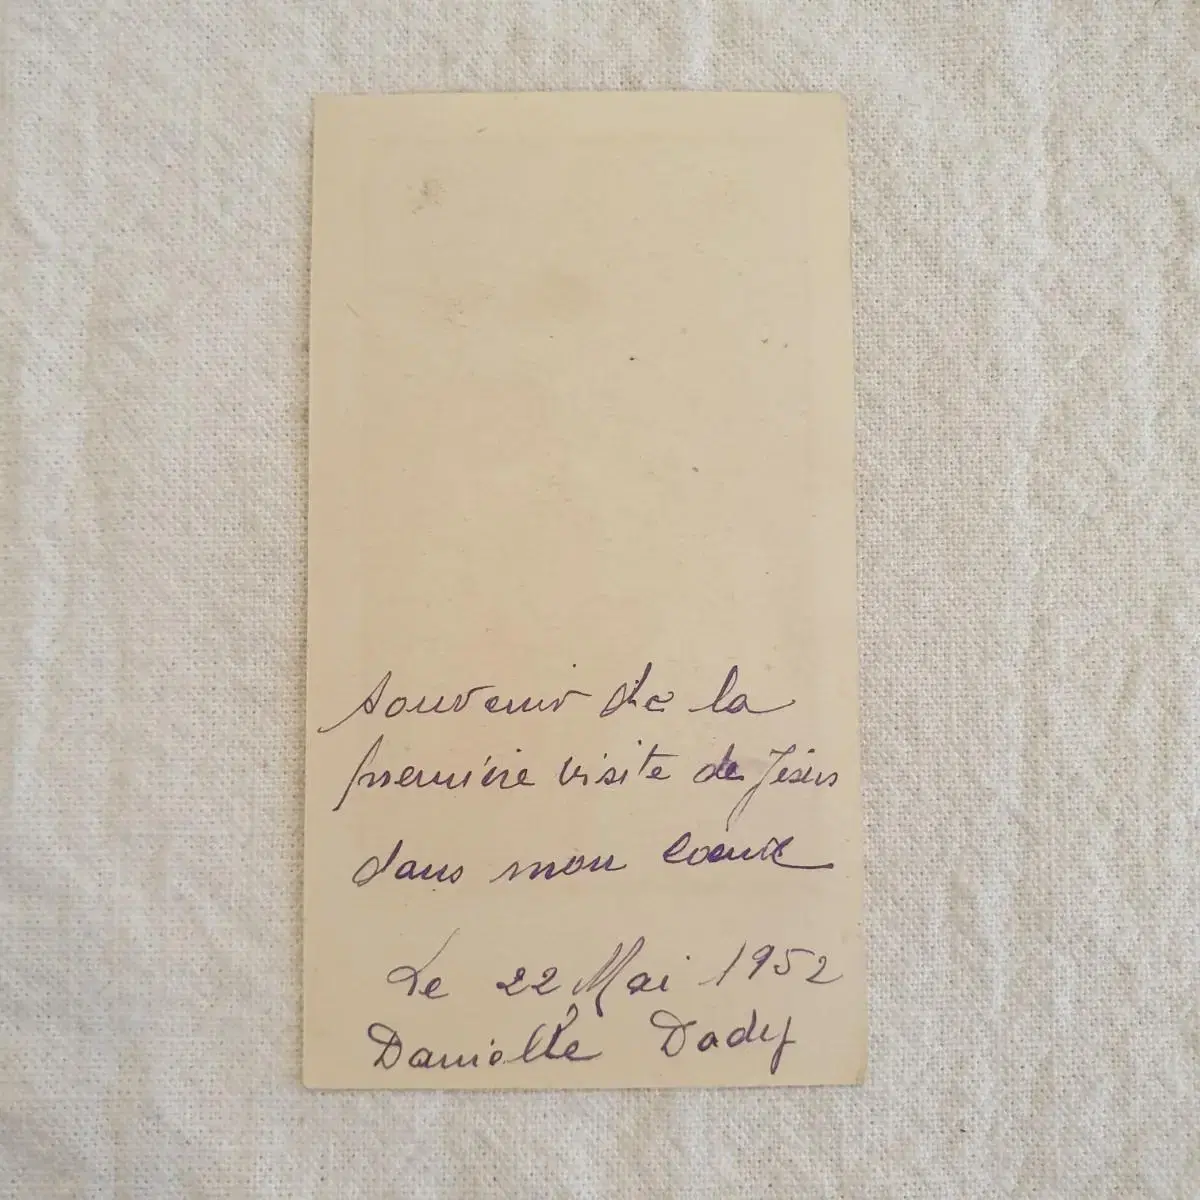 souvenir de la
première visite de Jésus
dans mon coeur
Le 22 Mai 1952
Danielle Dady